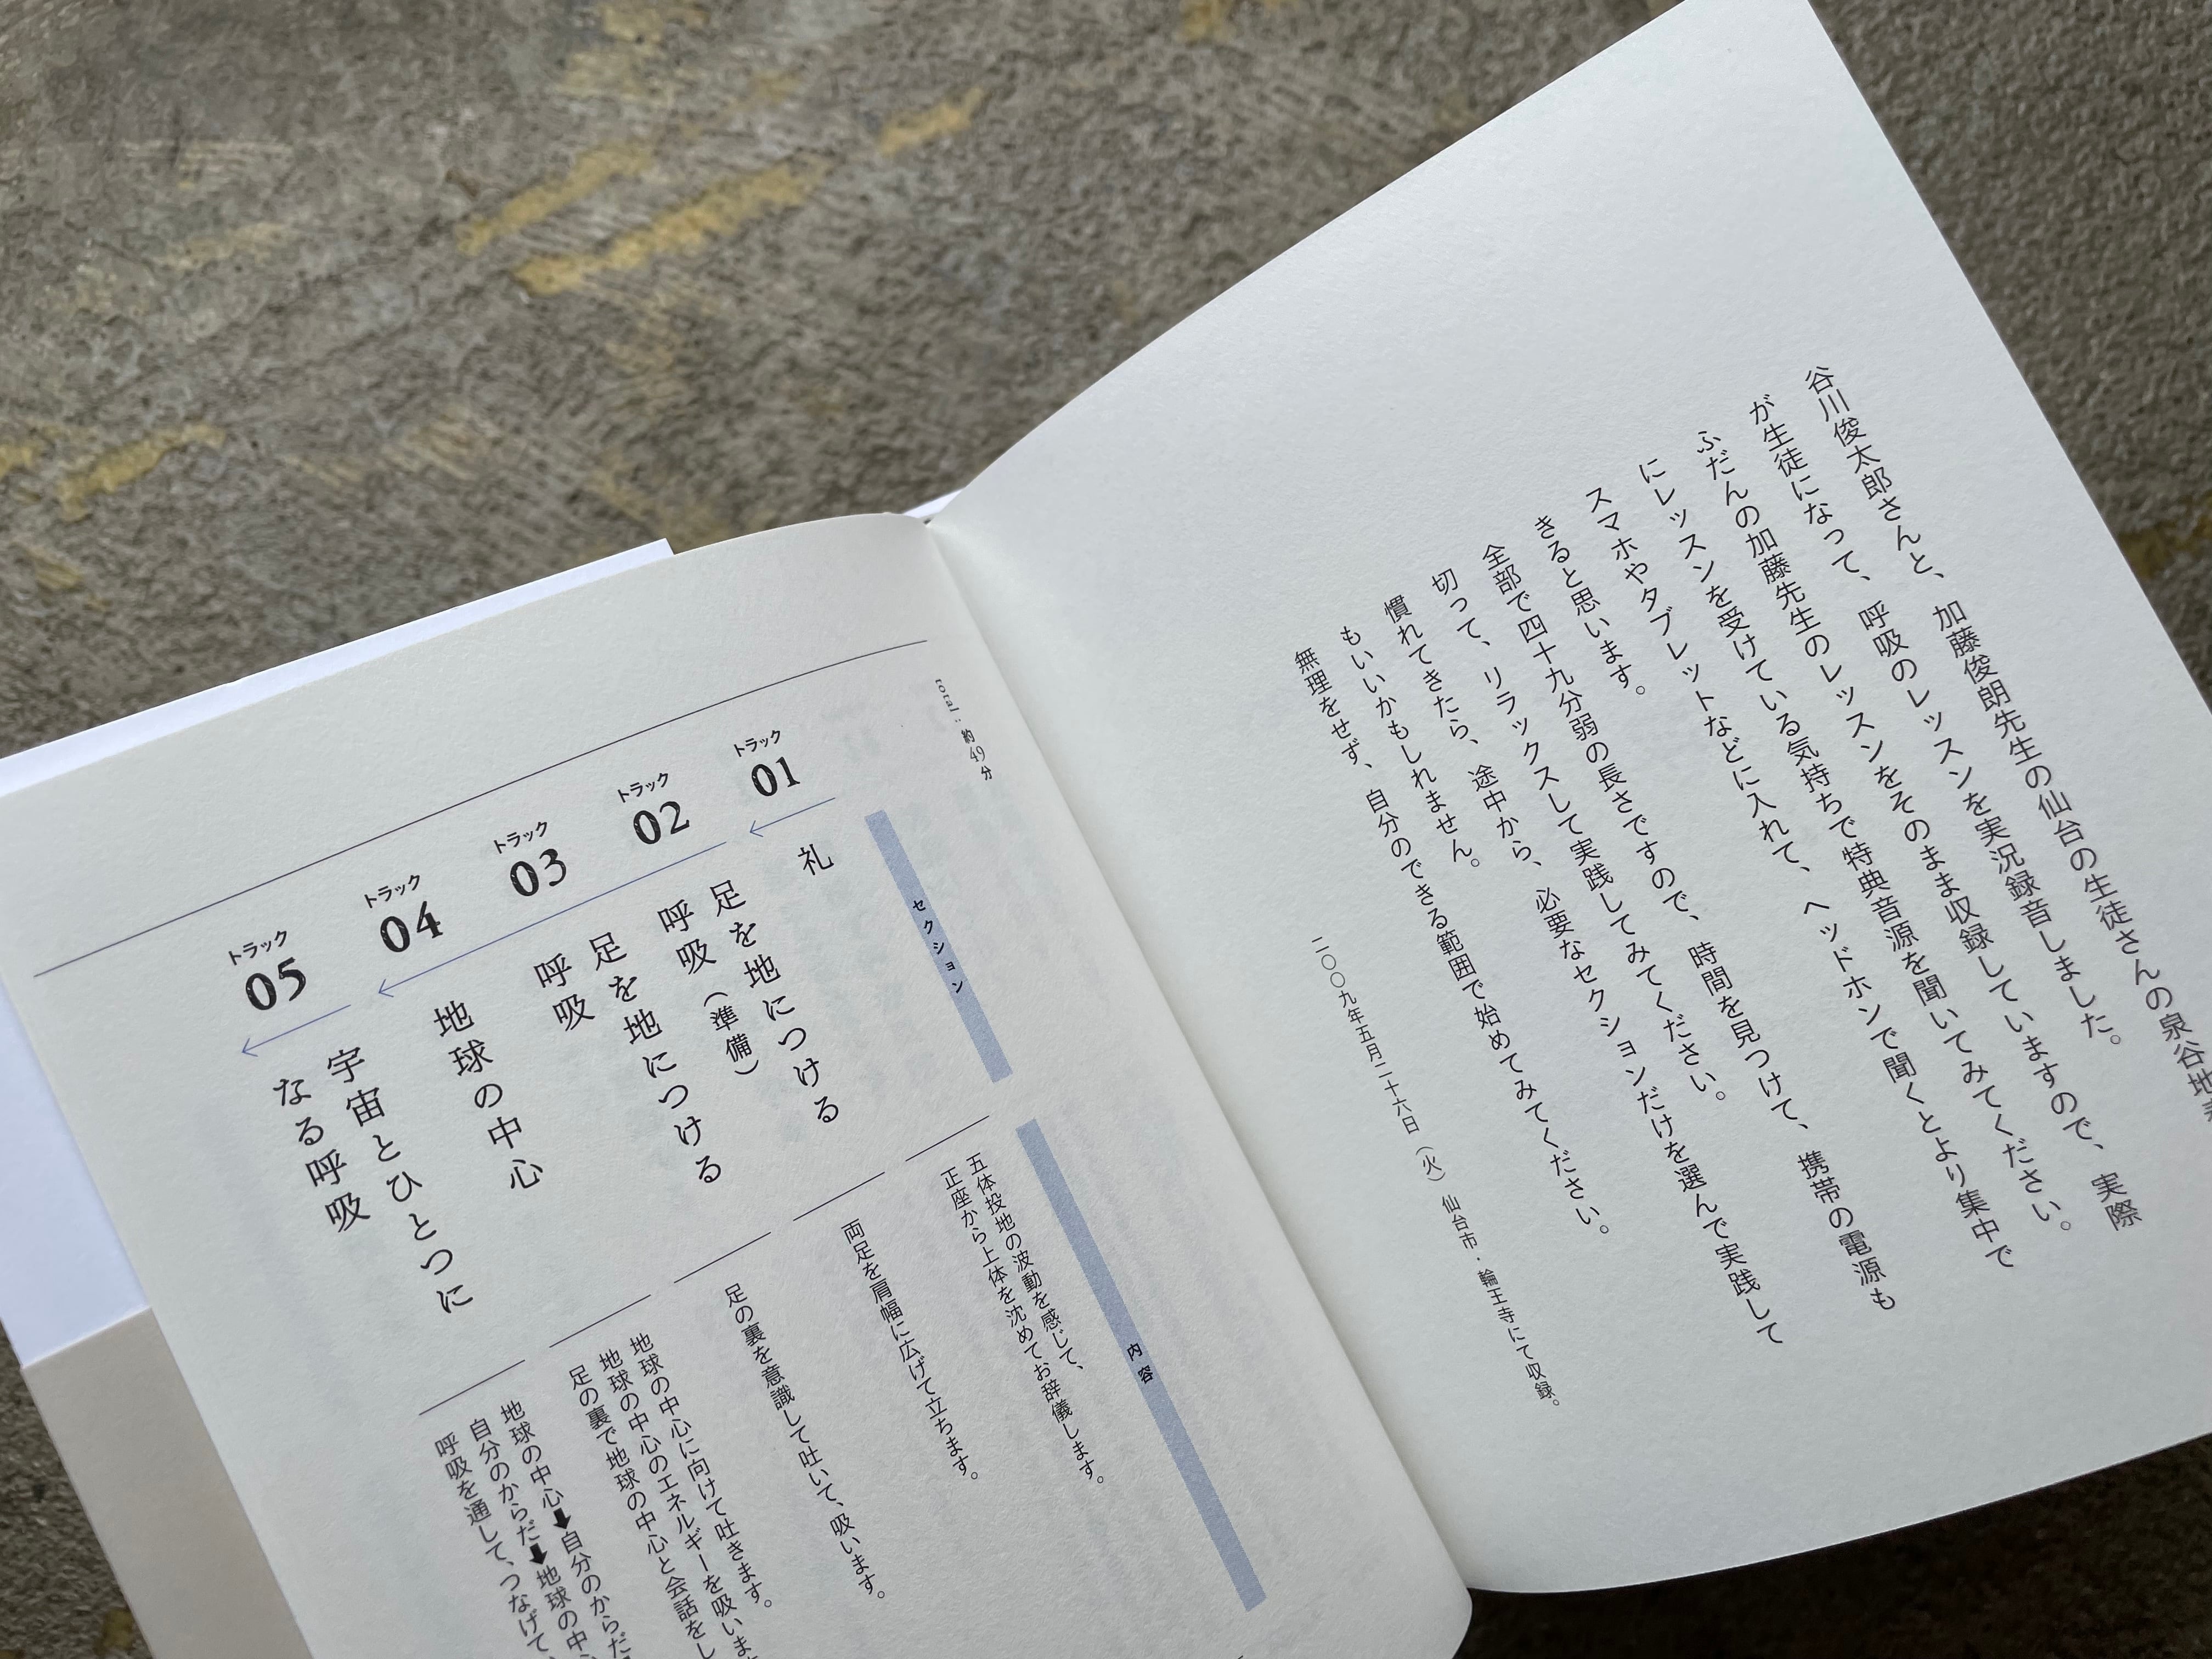 谷川俊太郎さんと、加藤俊朗先生の仙台の生徒さんの泉谷地
が生徒になって、呼吸のレッスンを実況録音しました。
ふだんの加藤先生のレッスンをそのまま収録していますので、実際
にレッスンを受けている気持ちで特典音源を聞いてみてください。
スマホやタブレットなどに入れて、ヘッドホンで聞くとより集中で
きると思います。
全部で四十九分弱の長さですので、時間を見つけて、携帯の電源も
切って、リラックスして実践してみてください。
慣れてきたら、途中から、必要なセクションだけを選んで実践して
もいいかもしれません。
無理をせず、自分のできる範囲で始めてみてください。
二〇〇九年五月二十六日（火）仙台市・輪王寺にて収録。
total：約49分
セクション
内容
トラック
01
礼
五体投地の波動を感じて、
正座から上体を沈めてお辞儀します。
トラック
02
足を地につける
呼吸（準備）
両足を肩幅に広げて立ちます。
トラック
03
足を地につける
呼吸
足の裏を意識して吐いて、吸います。
トラック
04
地球の中心
地球の中心に向けて吐きます。
地球の中心のエネルギーを吸いま
足の裏で地球の中心と会話をし
トラック
05
宇宙とひとつに
なる呼吸
地球の中心➡自分のからだ
自分のからだ➡地球の中
呼吸を通して、つなげて、